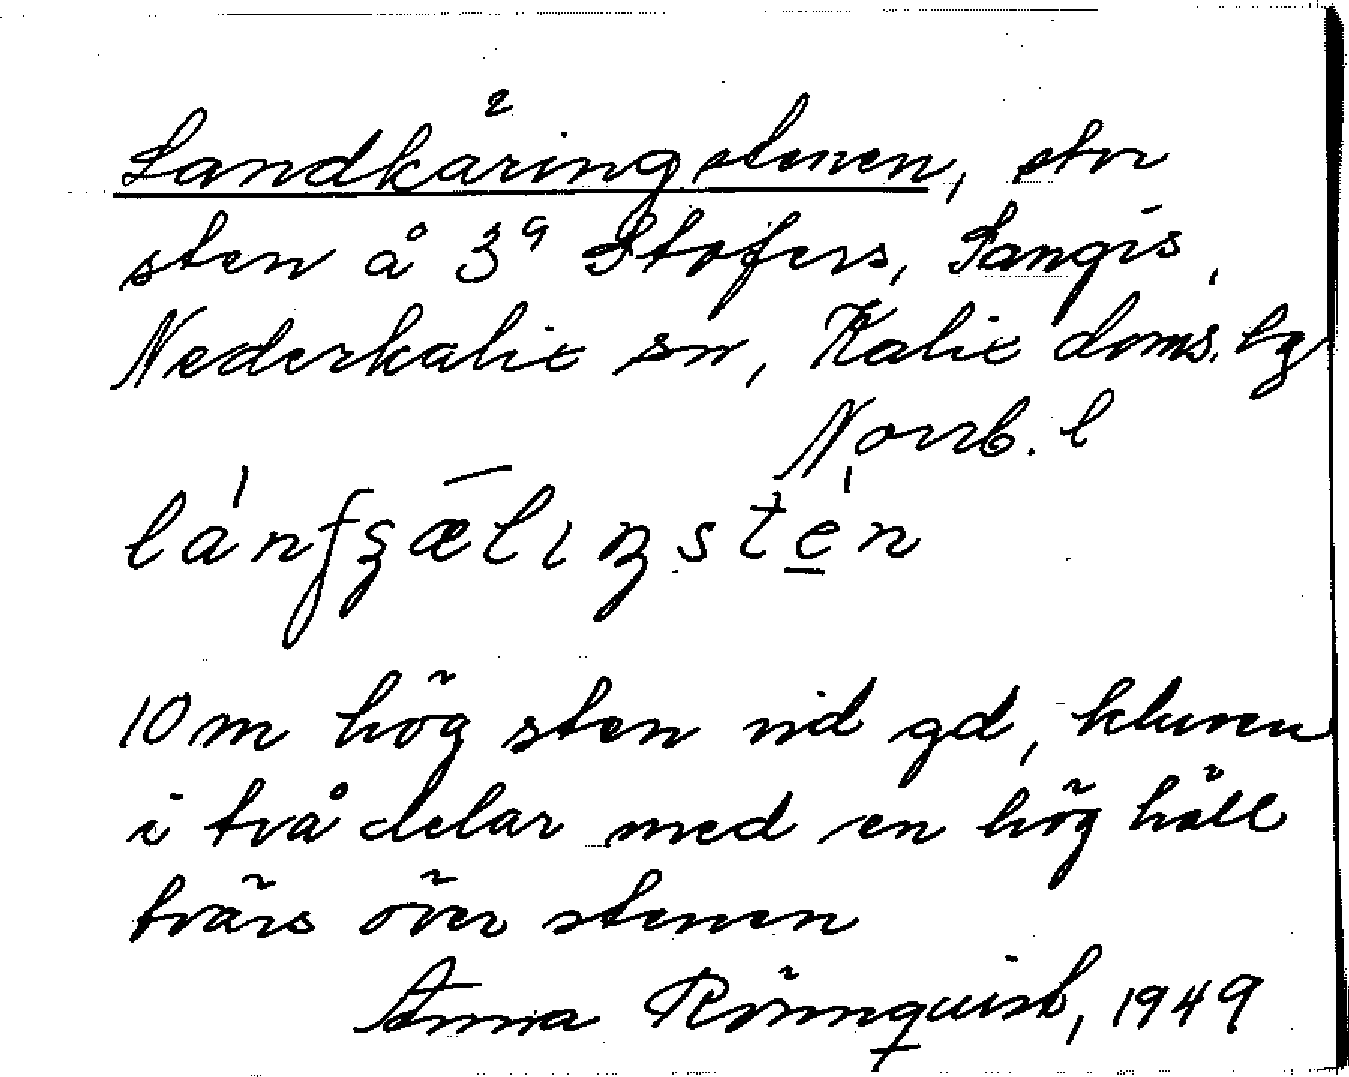 Landkäringstenen, stor
sten å 3⁹ Stofers, Sangis,
Nederkalix sn, Kalix doms. tg
Norrb. l
10 m hög sten vid gd, kluven
i två delar med en hög häll
tvärs över stenen
Anna Rönnquist, 1949